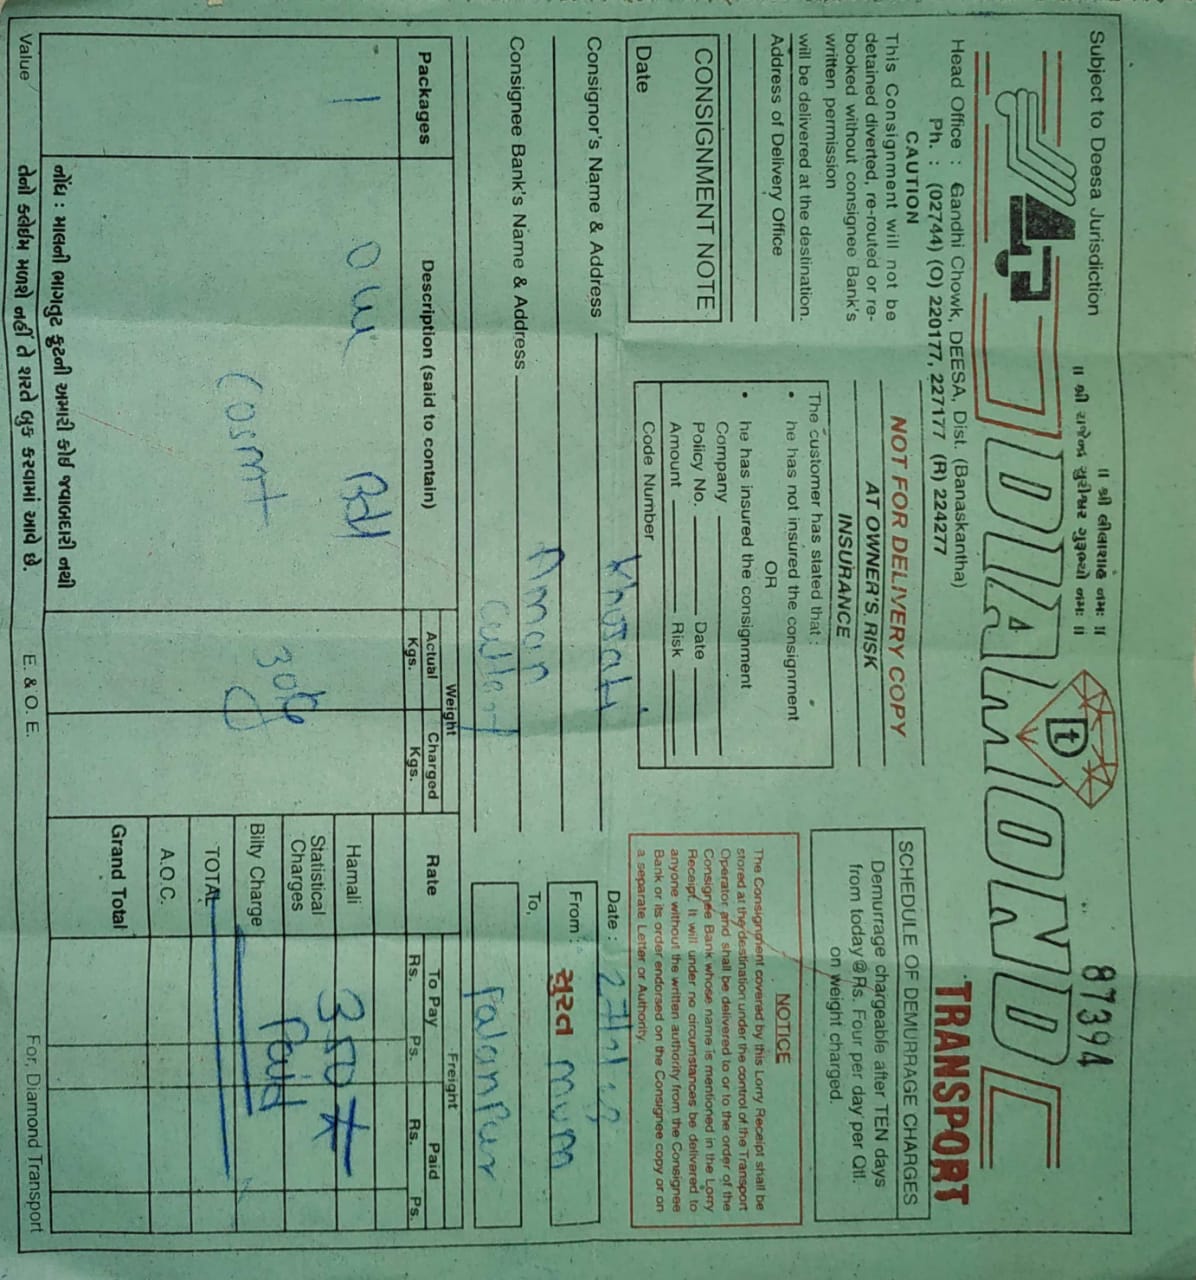 Subject to Deesa Jurisdiction
॥ શ્રી લીલાશાહે નમઃ ॥
॥ શ્રી રાજેન્દ્ર સુરીશ્વર ગુરૂભ્યો નમઃ ॥
87394
DIAMOND
t
TRANSPORT
Head Office : Gandhi Chowk, DEESA, Dist. (Banaskantha)
Ph. : (02744) (O) 220177, 227177 (R) 224277
CAUTION
This Consignment will not be
detained diverted, re-routed or re-
booked without consignee Bank's
written permission
will be delivered at the destination.
Address of Delivery Office
CONSIGNMENT NOTE
Date
NOT FOR DELIVERY COPY
AT OWNER'S RISK
INSURANCE
The customer has stated that :
• he has not insured the consignment
OR
• he has insured the consignment
Company
Policy No. Date
Amount Risk
Code Number
SCHEDULE OF DEMURRAGE CHARGES
Demurrage chargeable after TEN days
from today@Rs. Four per day per Qtl.
on weight charged.
NOTICE
The Consignment covered by this Lorry Receipt shall be
stored at the destination under the control of the Transport
Operator and shall be delivered to or to the order of the
Consignee Bank whose name is mentioned in the Lorry
Receipt. It will under no circumstances be delivered to
anyone without the written authority from the Consignee
Bank or its order endorsed on the Consignee copy or on
a separate Letter or Authority.
Consignor's Name & Address
Date :
From : સુરત mum
Consignee Bank's Name & Address Aman
To, Palanpur
Packages
Description (said to contain)
Weight
Actual Kgs.
Charged Kgs.
Rate
Freight
To Pay
Paid
Rs. Ps. Rs. Ps.
1
One
30 kg
Hamali
Statistical Charges 350
Bilty Charge Paid
TOTAL
A.O.C.
Grand Total
નોંધ : માલની ભાગતુટ ફુટની અમારી કોઈ જવાબદારી નથી
તેનો કલેઈમ મળશે નહીં તે શરતે બુક કરવામાં આવે છે.
Value
E. & O. E.
For, Diamond Transport